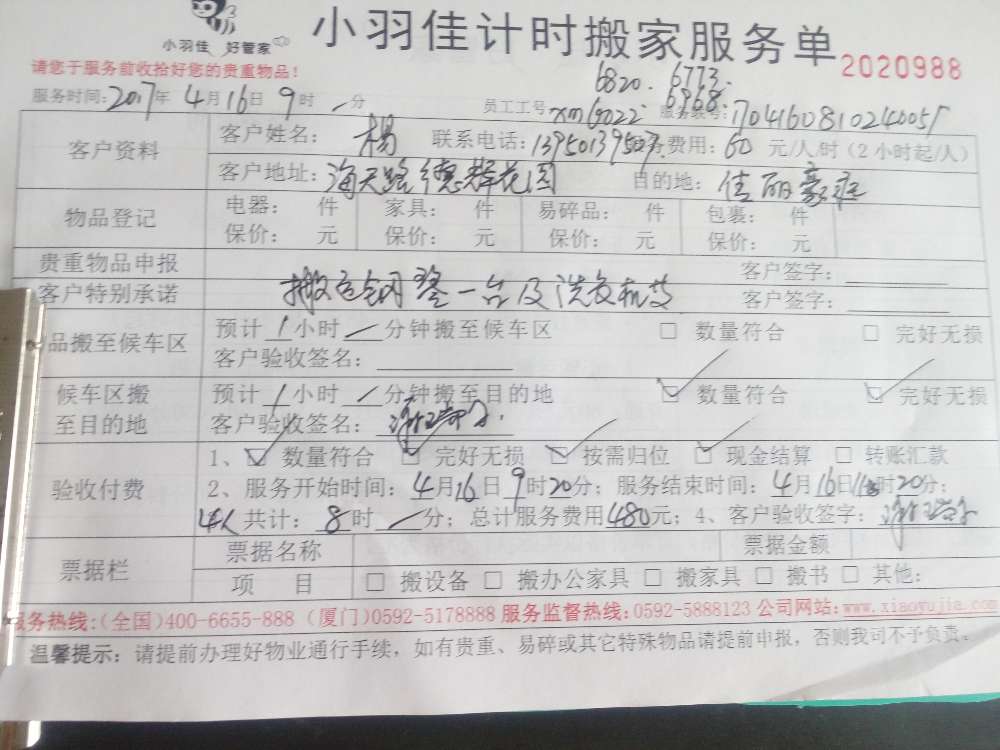 小羽佳 好管家
小羽佳计时搬家服务单
2020988
请您于服务前收拾好您的贵重物品！
6820. 6773.
服务时间：2017年 4月16日 9时 分
员工工号 xm6022. 6968. 服务账号：1704160810240051
客户资料
客户姓名： 杨 联系电话：13950139507 费用：60 元/人/时（2小时起/人）
客户地址：海天路德群花园 目的地：佳丽豪庭
物品登记
电器： 件 家具： 件 易碎品： 件 包裹： 件
保价： 元 保价： 元 保价： 元 保价： 元
贵重物品申报 客户签字：
客户特别承诺 搬运钢琴一台及洗衣机 客户签字：
品搬至候车区
预计 1小时 分钟搬至候车区 □ 数量符合 □ 完好无损
客户验收签名：
候车区搬
至目的地
预计 1小时 分钟搬至目的地 ☑ 数量符合 ☑ 完好无损
客户验收签名：
验收付费
1、☑ 数量符合 ☑ 完好无损 ☑ 按需归位 ☑ 现金结算 □ 转账汇款
2、服务开始时间：4月16日9时20分；服务结束时间：4月16日11时20分；
4人 共计：8时 分；总计服务费用480元；4、客户验收签字：
票据栏
票据名称 票据金额
项 目 □ 搬设备 □ 搬办公家具 □ 搬家具 □ 搬书 □ 其他：
服务热线：(全国)400-6655-888 (厦门)0592-5178888 服务监督热线：0592-5888123 公司网站：www.xiaoyujia.com
温馨提示：请提前办理好物业通行手续，如有贵重、易碎或其它特殊物品请提前申报，否则我司不予负责。